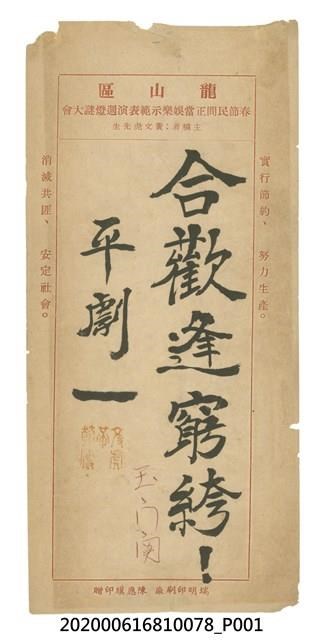 龍山區
春節民間正當娛樂示範表演週燈謎大會
主稿者：黃文虎先生
實行節約、努力生產。
合歡逢窮絝！
平劇一
玉门関
消滅共匪、安定社會。
瑞明印刷廠 陳應騏印贈
202000616810078_P001